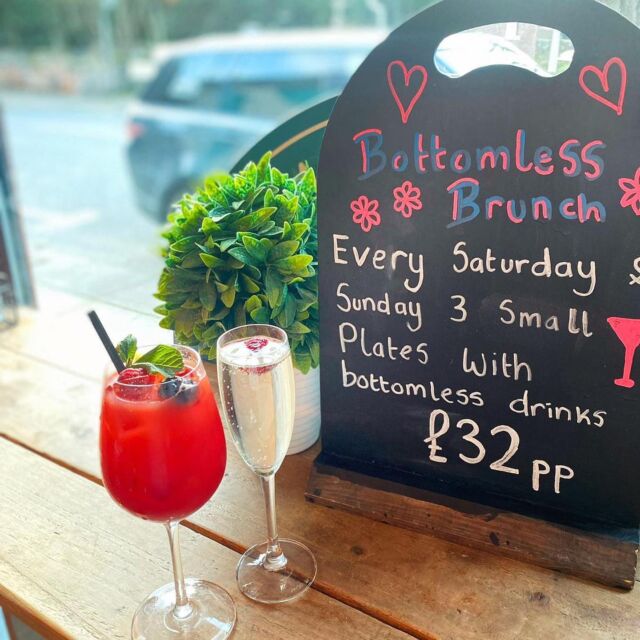 Bottomless
Brunch
Every Saturday &
Sunday 3 Small
Plates With
bottomless drinks
£32 pp